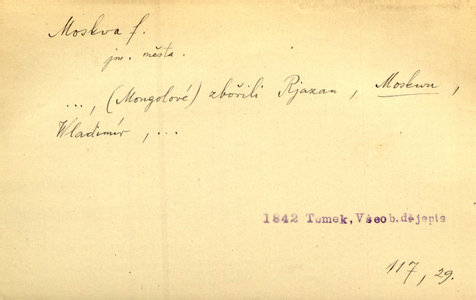 Moskva f.
jm. města.
..., (Mongolové) zbořili Rjazan, Moskwu,
Wladimír, ...
1842 Tomek, Všeob. dějepis
117, 29.